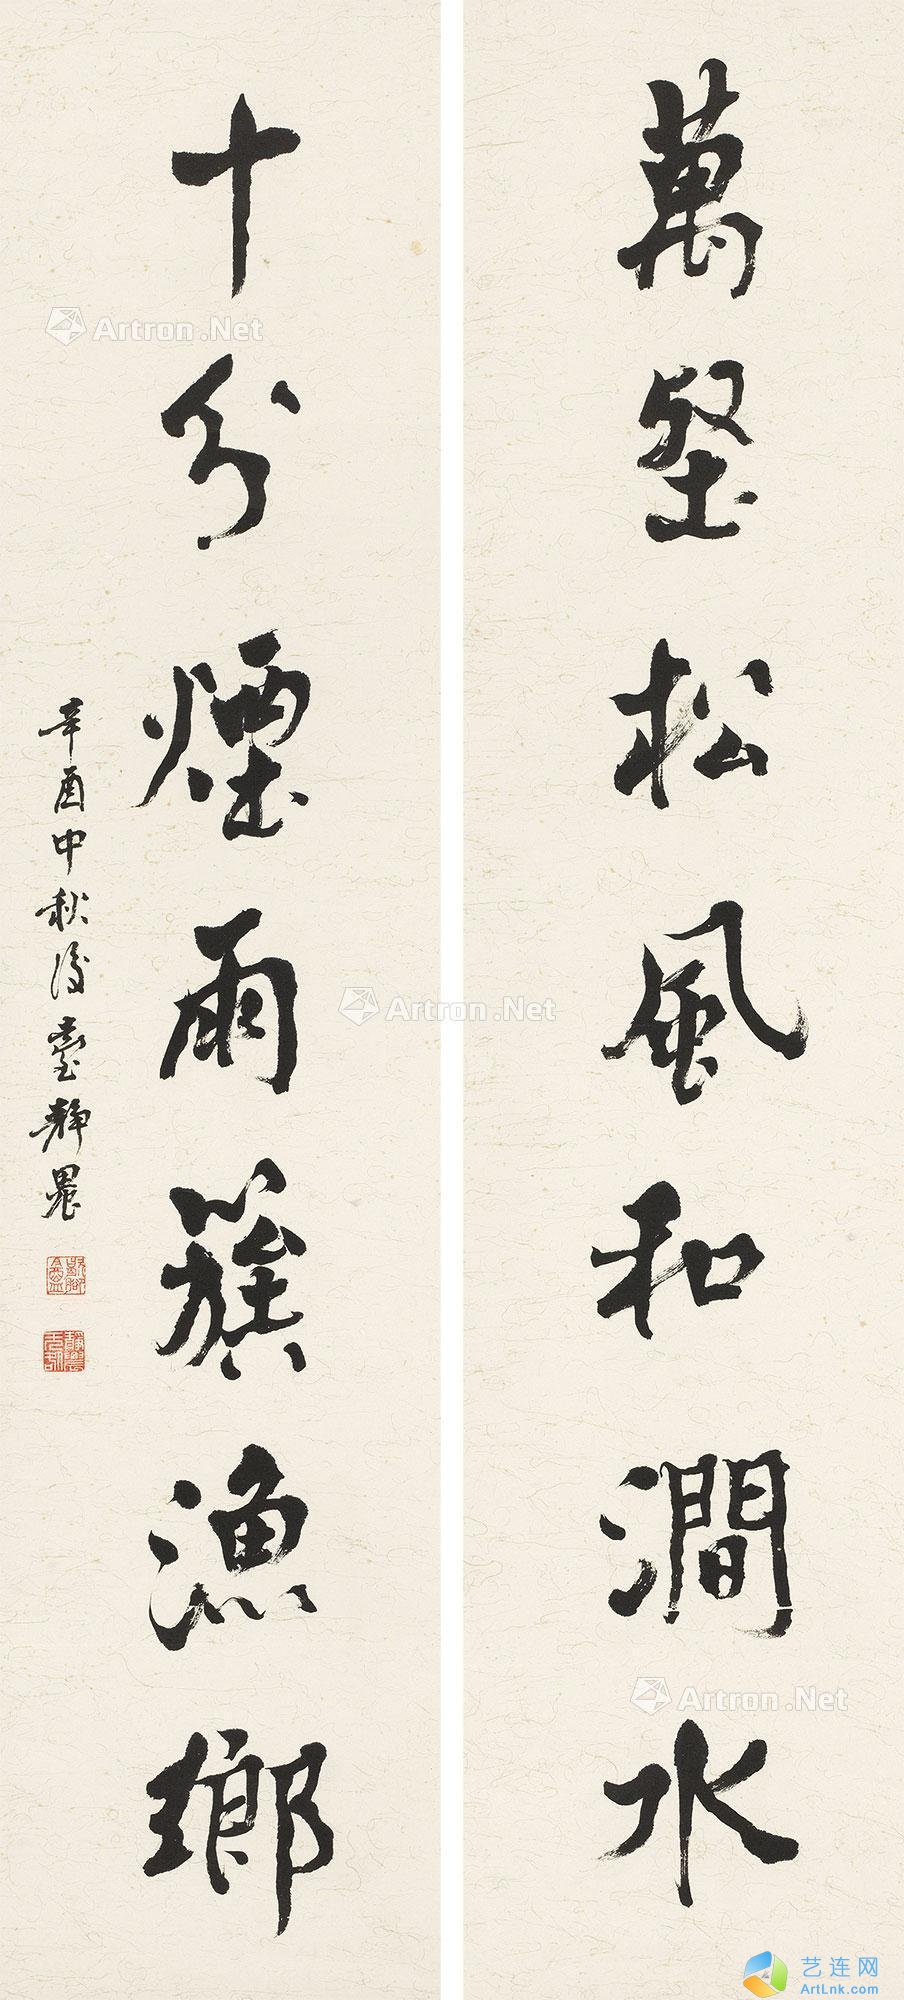 萬壑松風和澗水
十分煙雨簇漁鄉
辛酉中秋後臺靜農
歇腳盦
靜農
Artron.Net
Artron.Net
Artron.Net
艺连网
ArtLnk.com